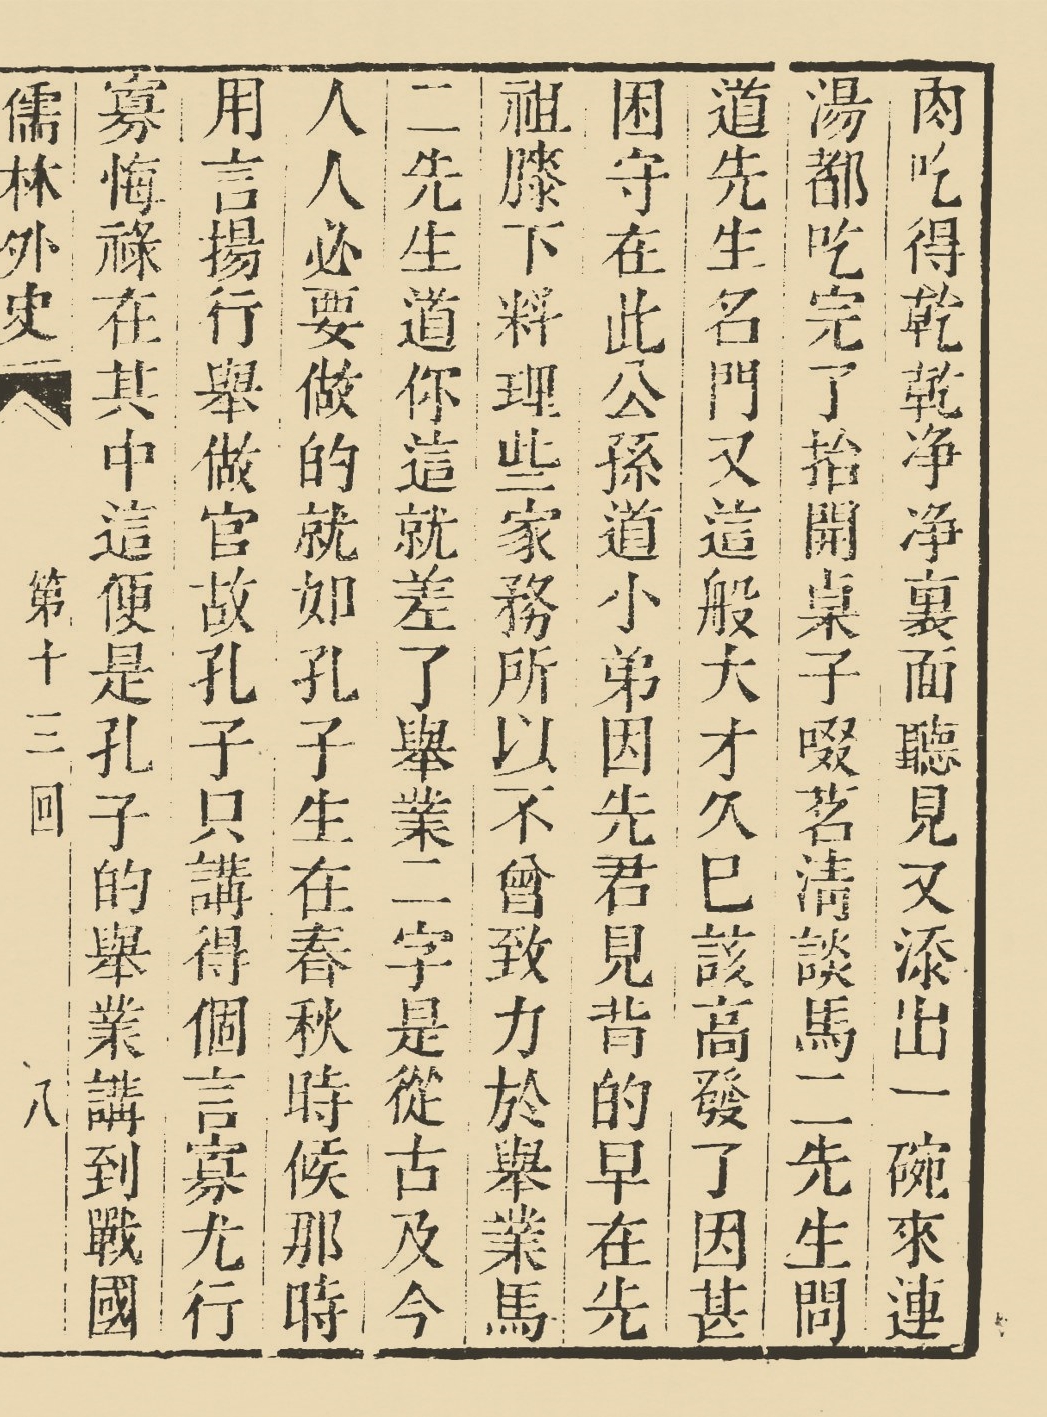 肉吃得乾乾净净裏面聽見又添出一碗來連
湯都吃完了抬開桌子啜茗清談馬二先生問
道先生名門又這般大才久已該高發了因甚
困守在此公孫道小弟因先君見背的早在先
祖膝下料理些家務所以不曾致力於舉業馬
二先生道你這就差了舉業二字是從古及今
人人必要做的就如孔子生在春秋時候那時
用言揚行舉做官故孔子只講得個言寡尤行
寡悔祿在其中這便是孔子的舉業講到戰國
儒林外史 第十三回 八